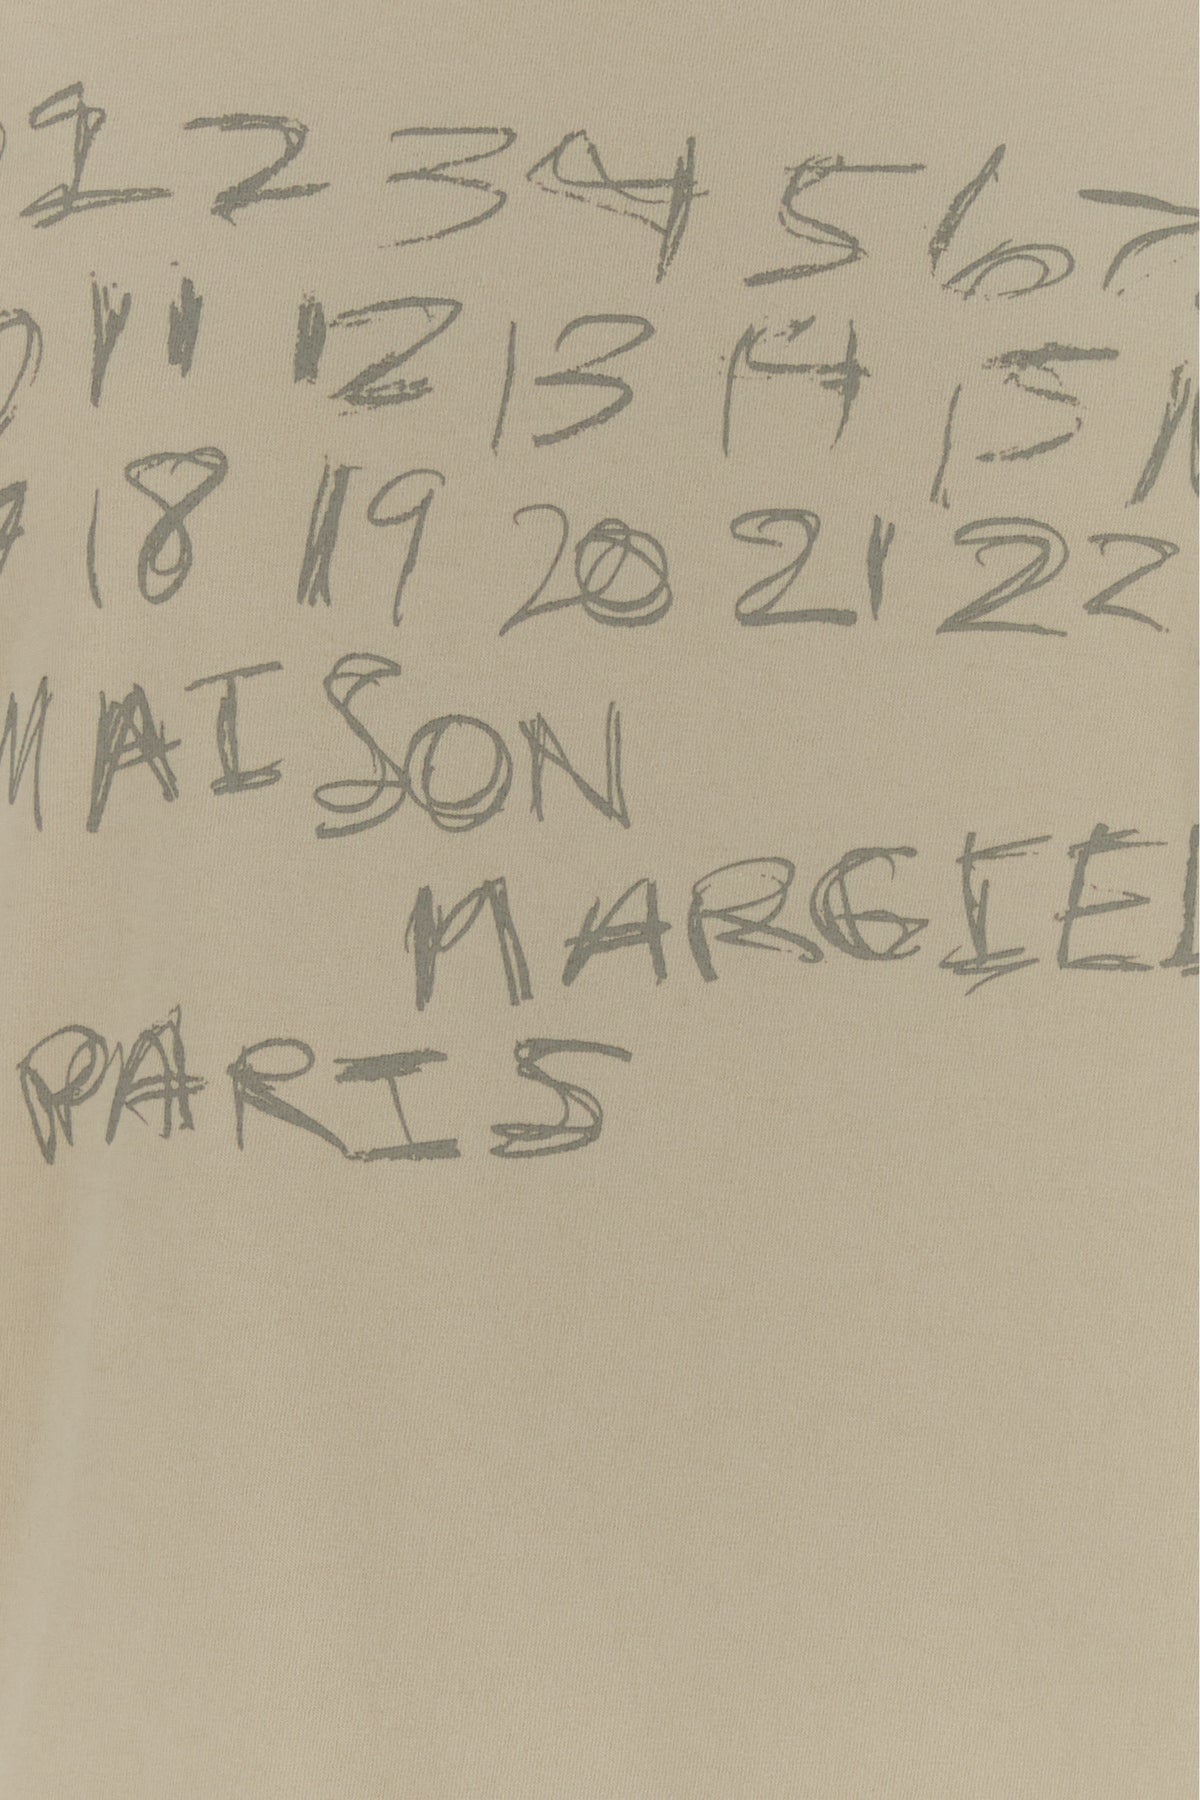 0 1 2 3 4 5 6 7
0 11 12 13 14 15 1
7 18 19 20 21 22
MAISON
MARGIEL
PARIS